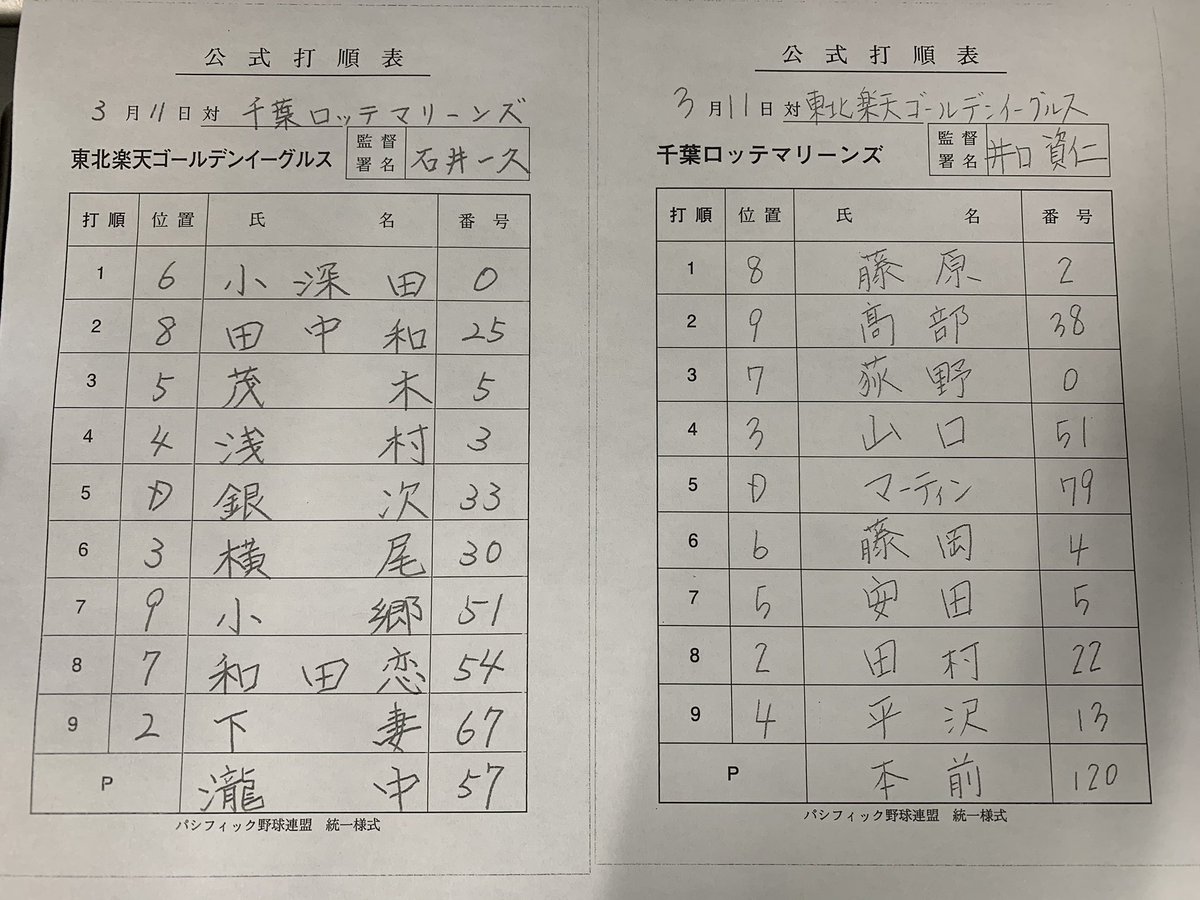 公式打順表
3月11日対 千葉ロッテマリーンズ
東北楽天ゴールデンイーグルス 監督署名 石井一久
打順 位置 氏名 番号
1 6 小深田 0
2 8 田中和 25
3 5 茂木 5
4 4 浅村 3
5 D 銀次 33
6 3 横尾 30
7 9 小郷 51
8 7 和田恋 54
9 2 下妻 67
P 瀧中 57
パシフィック野球連盟 統一様式
公式打順表
3月11日対 東北楽天ゴールデンイーグルス
千葉ロッテマリーンズ 監督署名 井口資仁
打順 位置 氏名 番号
1 8 藤原 2
2 9 髙部 38
3 7 荻野 0
4 3 山口 51
5 D マーティン 79
6 6 藤岡 4
7 5 安田 5
8 2 田村 22
9 4 平沢 13
P 本前 120
パシフィック野球連盟 統一様式